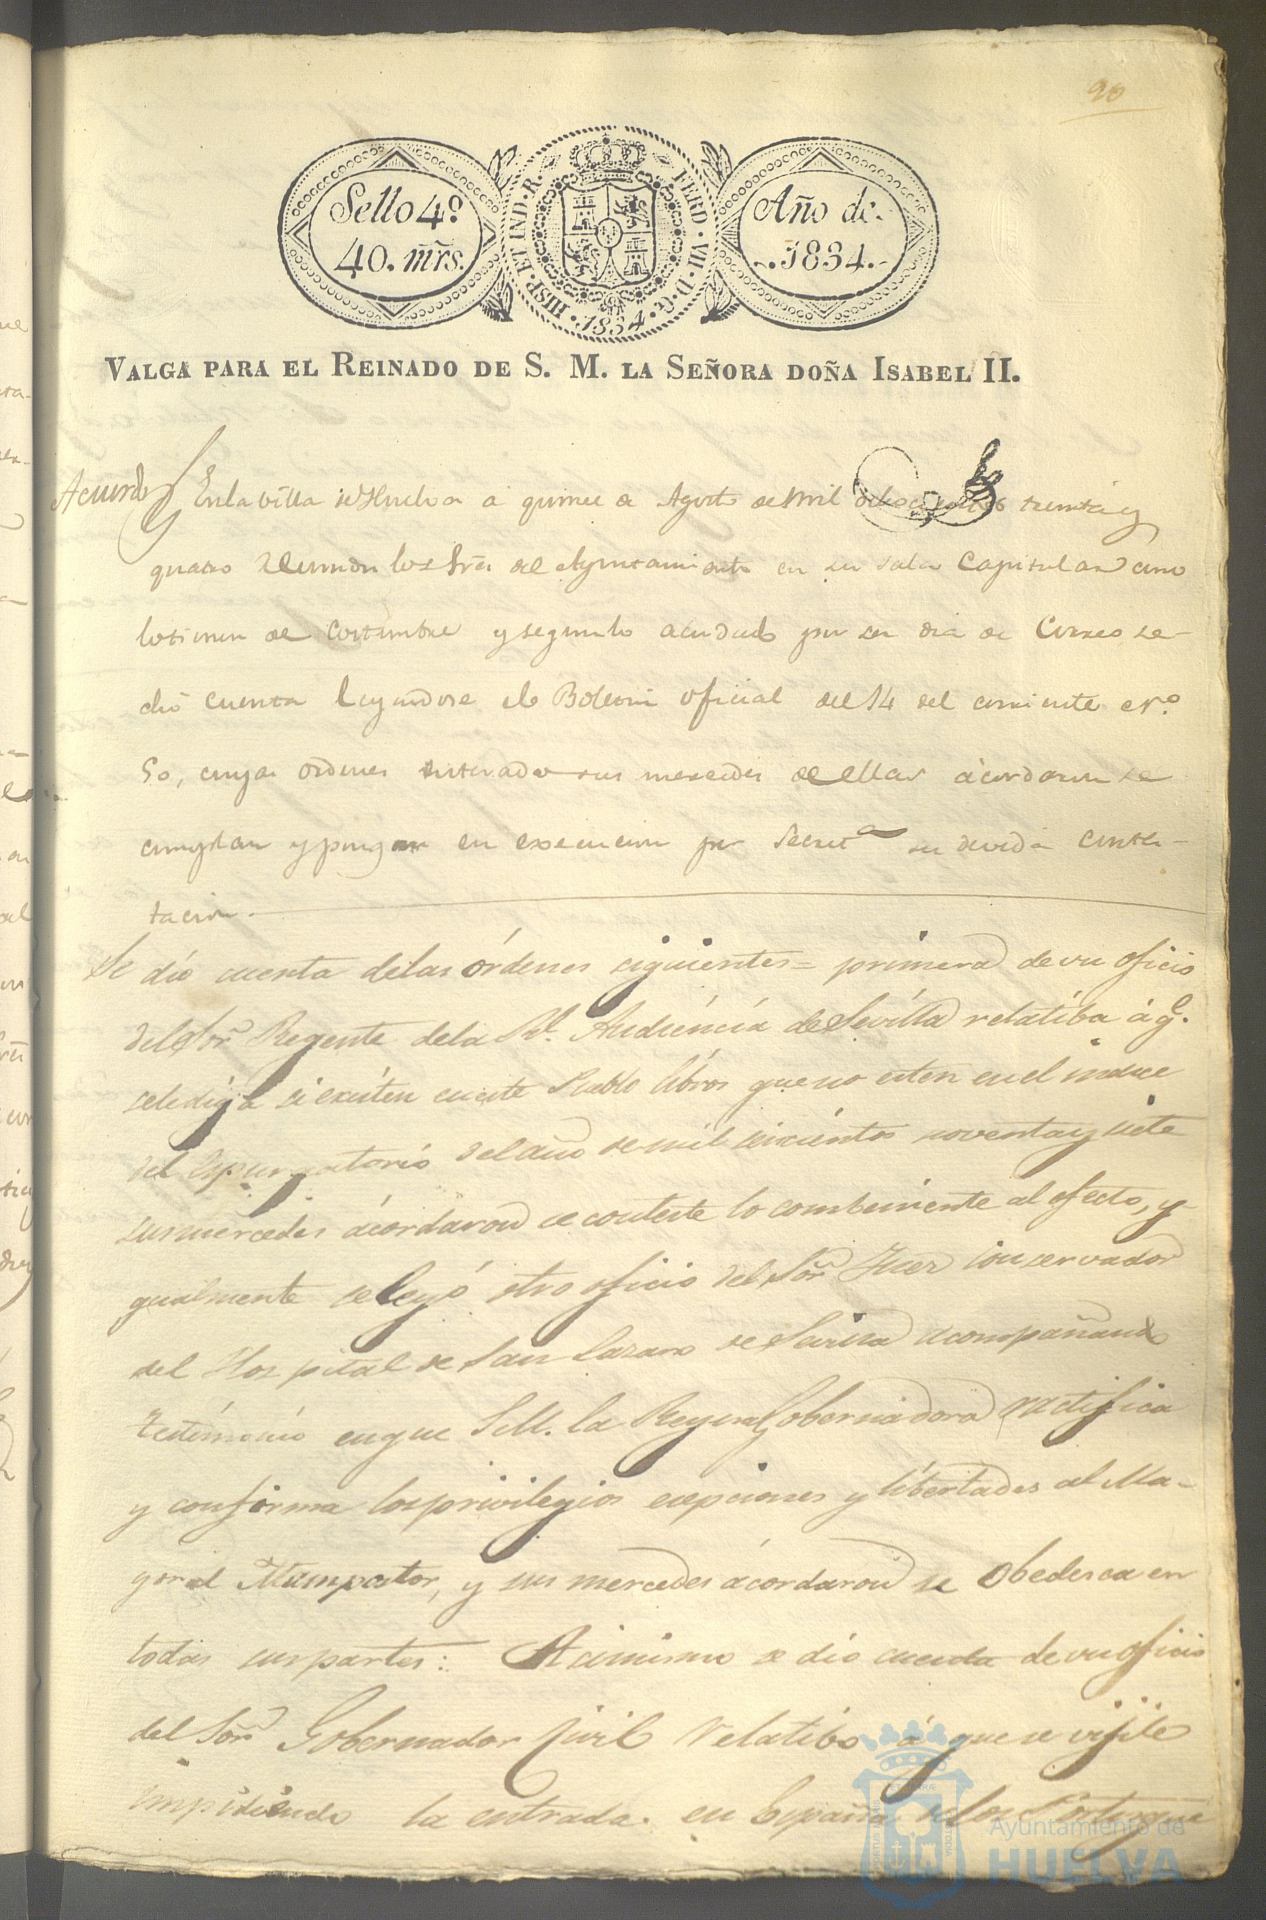 90
Sello 4º
40. mrs.
HISP. ET IND. R.
FERD. VII. D. G.
1834
Año de
1834.
VALGA PARA EL REINADO DE S. M. LA SEÑORA DOÑA ISABEL II.
Acuerdo
En la villa de Huelva a quince de Agosto de mil ochocientos treinta y
quatro reunidos los Sres del Ayuntamiento en su sala Capitular como
lo tienen de costumbre y segun lo acordado por ser dia de Correo se
dio cuenta leyendose el Boletin oficial del 14 del corriente nº.
50, cuyas ordenes enterados sus mercedes de ellas acordaron se
cumplan y pongan en execucion por Secretª su devida contes-
tacion.
Se dio cuenta de las órdenes siguientes = primera de un oficio
del Sor. Regente de la Rl. Audiéncia de Sevilla relatiba á q.e
se le diga si existen en este Pueblo libros que no esten en el indice
del espurgatorio del año de mil seiscientos noventa y siete
sus mercedes ácordaron se conteste lo combeniente al efecto, y
gualmente se leyó otro oficio del Sor. Juez conservador
del Hospital de San Lazaro de Sevilla acompañando
testimonio en que S.M. la Reyna Gobernadora ratifica
y conforma los privilegios ecepciones y libertades al Ma-
yoral Mampastor, y sus mercedes ácordaron se obedesca en
todas sus partes: Asimismo se dio cuenta de un oficio
del Sor. Gobernador Civil relatibo á que se vijile
impidiendo la entrada en España de los Portugue
Ayuntamiento de
HUELVA